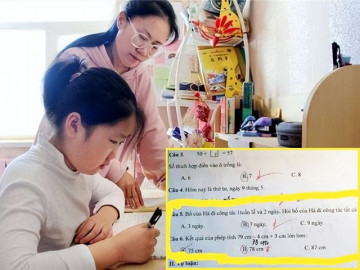 Câu 3. 50 + [ ] = 57
Số thích hợp điền vào ô trống là:
A. 6 B. 7 C. 8
Câu 4. Hôm nay là thứ tư, ngày 9 tháng 5.
Câu 5. Bố của Hà đi công tác 1 tuần lễ và 2 ngày. Hỏi bố của Hà đi công tác tất cả
A. 3 ngày. B. 7 ngày. C. 9 ngày
Câu 6. Kết quả của phép tính 79 cm - 4 cm + 3 cm lớn hơn:
78 cm
75 cm B. 78 cm C. 87 cm
II. Tự luận: